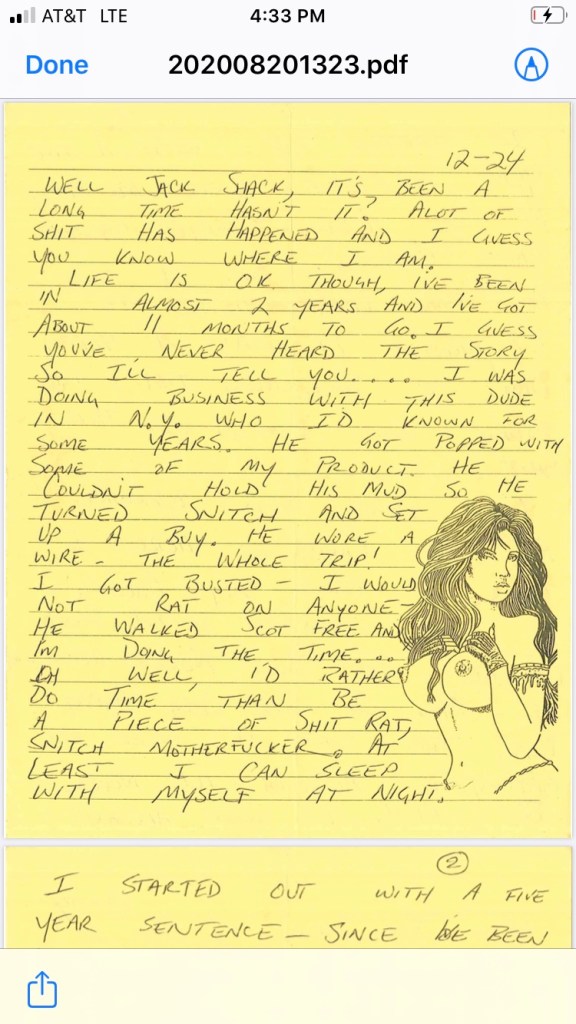 AT&T LTE 4:33 PM
Done 202008201323.pdf
12-24
WELL JACK SHACK, IT'S BEEN A
LONG TIME HASN'T IT? ALOT OF
SHIT HAS HAPPENED AND I GUESS
YOU KNOW WHERE I AM.
LIFE IS OK THOUGH, I'VE BEEN
IN ALMOST 2 YEARS AND I'VE GOT
ABOUT 11 MONTHS TO GO. I GUESS
YOUVE NEVER HEARD THE STORY
SO I'LL TELL YOU.... I WAS
DOING BUSINESS WITH THIS DUDE
IN N.Y. WHO I'D KNOWN FOR
SOME YEARS. HE GOT POPPED WITH
SOME OF MY PRODUCT. HE
COULDN'T HOLD HIS MUD SO HE
TURNED SNITCH AND SET
UP A BUY. HE WORE A
WIRE - THE WHOLE TRIP!
I GOT BUSTED - I WOULD
NOT RAT ON ANYONE -
HE WALKED SCOT FREE AND
I'M DOING THE TIME....
OH WELL, I'D RATHER
DO TIME THAN BE
A PIECE OF SHIT RAT,
SNITCH MOTHERFUCKER. AT
LEAST I CAN SLEEP
WITH MYSELF AT NIGHT.
2
I STARTED OUT WITH A FIVE
YEAR SENTENCE - SINCE I'VE BEEN